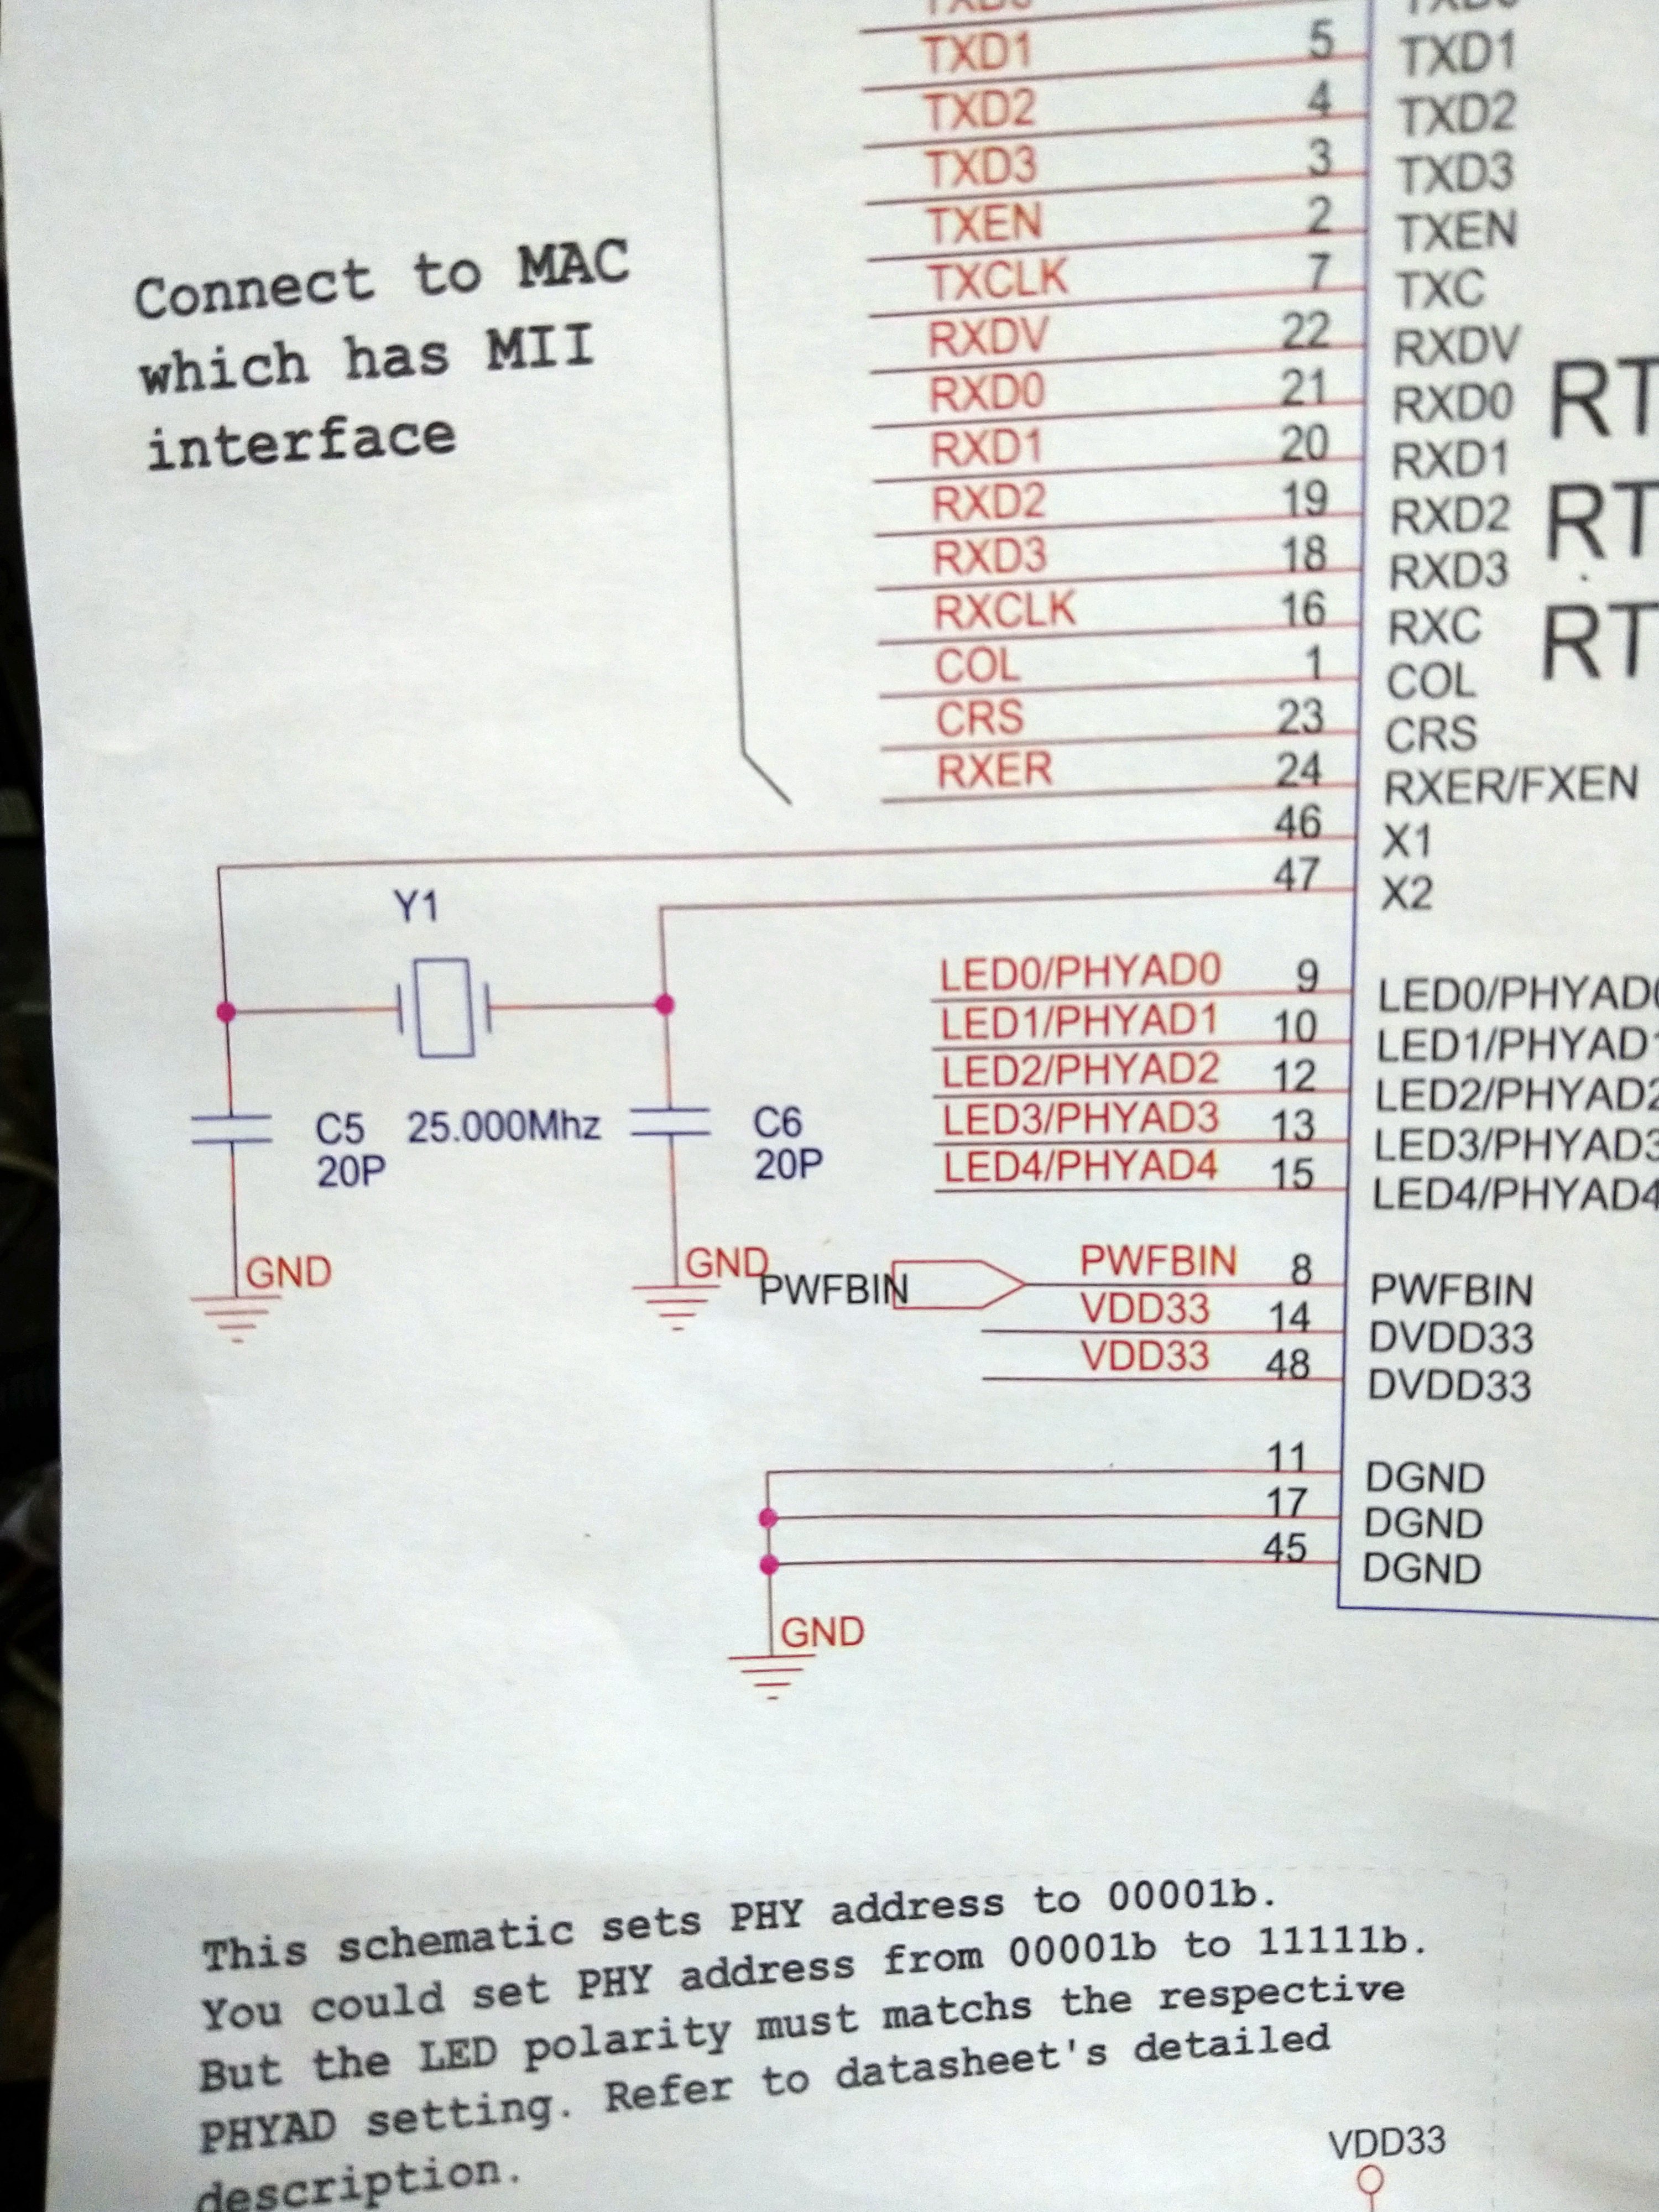 TXD1 5 TXD1
TXD2 4 TXD2
TXD3 3 TXD3
TXEN 2 TXEN
TXCLK 7 TXC
RXDV 22 RXDV
RXD0 21 RXD0 RT
RXD1 20 RXD1
RXD2 19 RXD2 RT
RXD3 18 RXD3
RXCLK 16 RXC RT
COL 1 COL
CRS 23 CRS
RXER 24 RXER/FXEN
46 X1
47 X2
Connect to MAC
which has MII
interface
Y1
C5 25.000Mhz C6
20P 20P
GND GND
LED0/PHYAD0 9 LED0/PHYAD0
LED1/PHYAD1 10 LED1/PHYAD1
LED2/PHYAD2 12 LED2/PHYAD2
LED3/PHYAD3 13 LED3/PHYAD3
LED4/PHYAD4 15 LED4/PHYAD4
PWFBIN PWFBIN 8 PWFBIN
VDD33 14 DVDD33
VDD33 48 DVDD33
11 DGND
17 DGND
45 DGND
GND
This schematic sets PHY address to 00001b.
You could set PHY address from 00001b to 11111b.
But the LED polarity must matchs the respective
PHYAD setting. Refer to datasheet's detailed
description.
VDD33